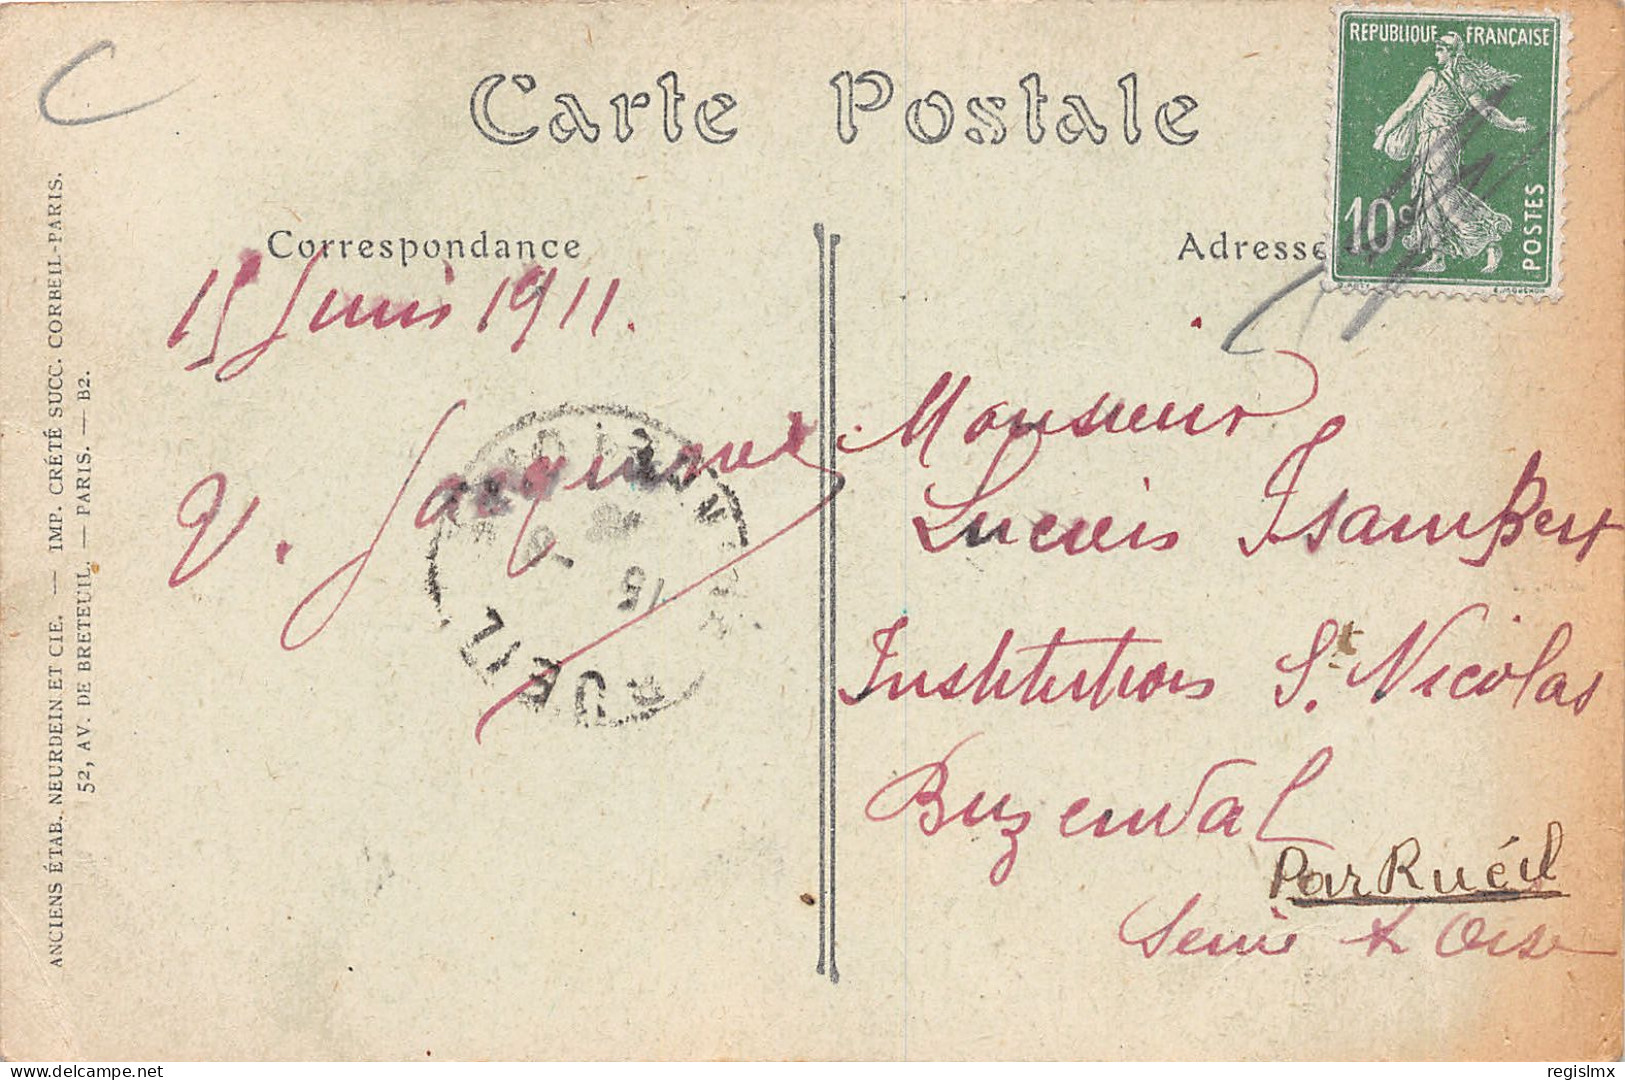 Carte Postale
REPUBLIQUE FRANÇAISE
10c
POSTES
Correspondance
Adresse
15 Juin 1911.
V. Jacquinot
Monsieur
Lucien Isambert
Institution St. Nicolas
Buzenval
Par Ruéil
Seine & Oise
RUEIL
15
ANCIENS ÉTAB. NEURDEIN ET CIE. — IMP. CRÉTÉ SUCC. CORBEIL-PARIS.
52, AV. DE BRETEUIL. — PARIS. — B2.
delcampe.net
regislmx